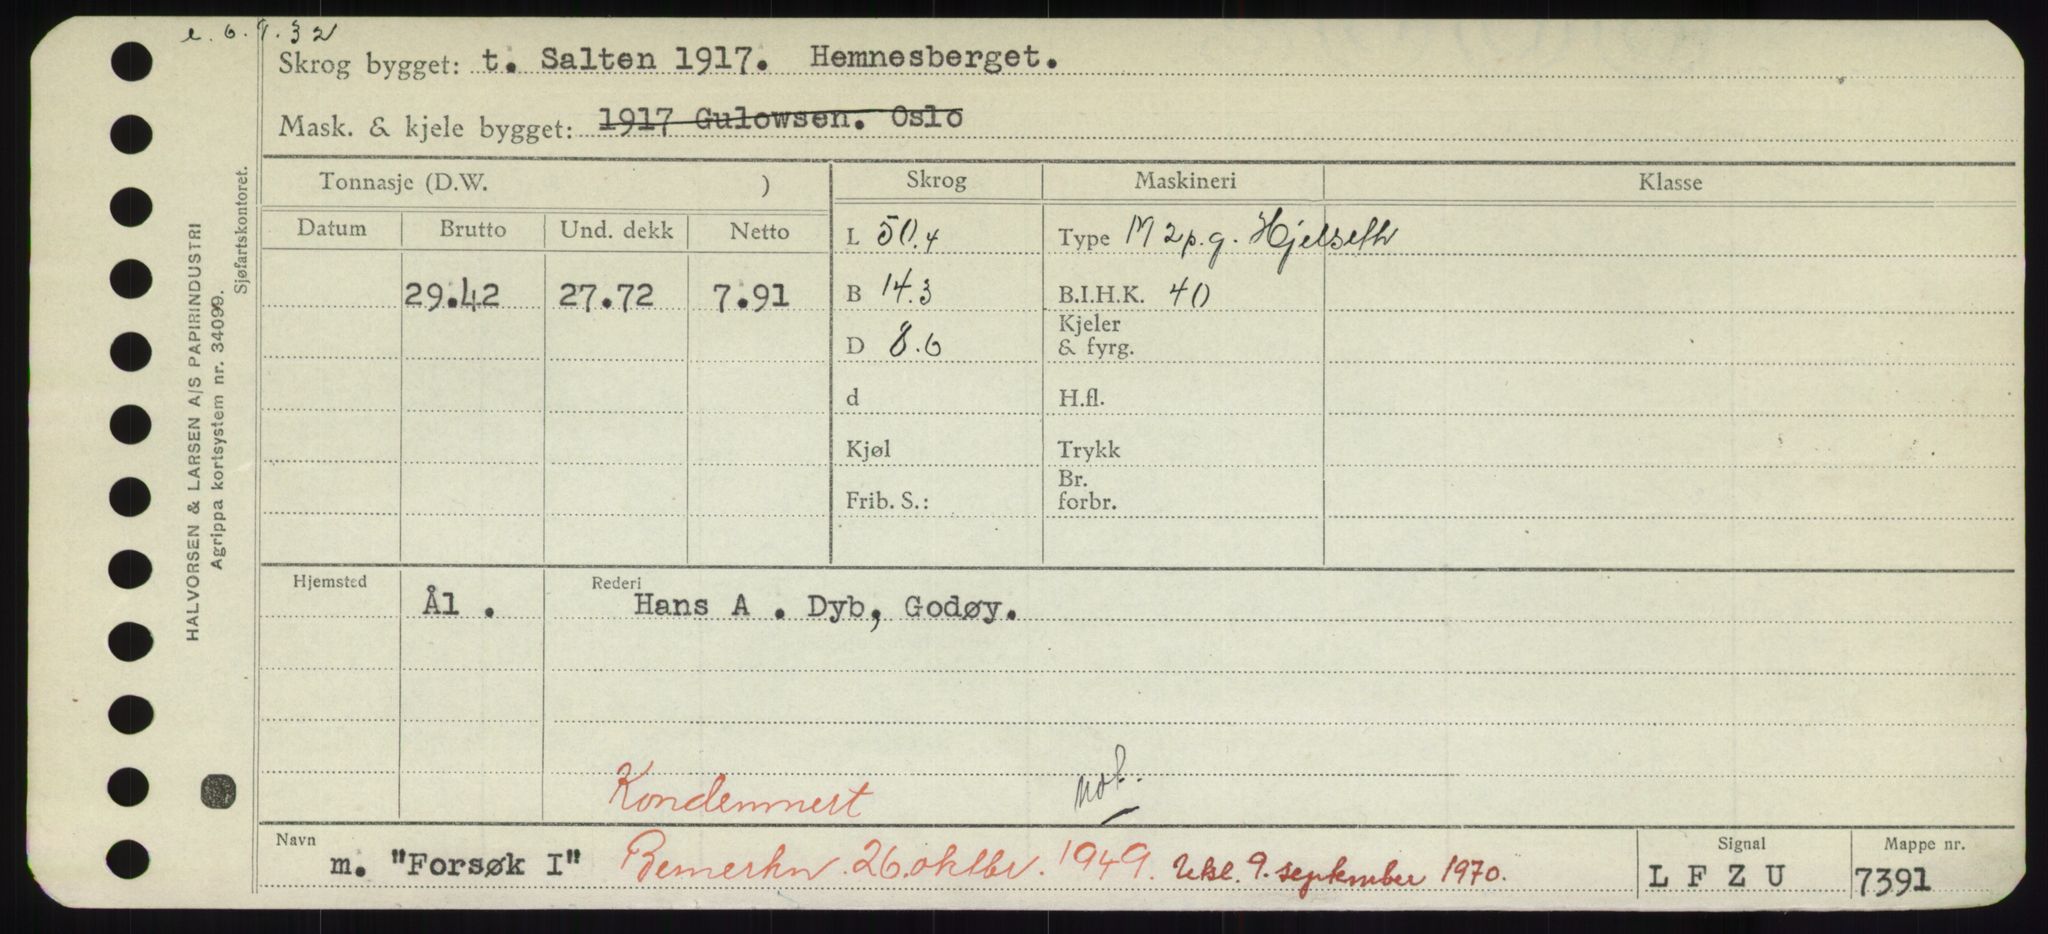 e. 6.9.32
Skrog bygget: t. Salten 1917. Hemnesberget.
Mask. & kjele bygget: 1917 Gulowsen. Oslo
Tonnasje (D.W. ) Skrog Maskineri Klasse
Datum Brutto Und. dekk Netto L 50.4 Type M 2p.g. Hjelseth
29.42 27.72 7.91 B 14.3 B.I.H.K. 40
D 8.6 Kjeler & fyrg.
d H.fl.
Kjøl Trykk
Frib. S.: Br. forbr.
Hjemsted Ål . Rederi Hans A . Dyb, Godøy.
Kondemnert
Navn m. "Forsøk I" Bemerkn. 26. oktbr. 1949. Uksl. 9. september 1970. Signal L F Z U Mappe nr. 7391
HALVORSEN & LARSEN A/S PAPIRINDUSTRI
Agrippa kortsystem nr. 34099.
Sjøfartskontoret.